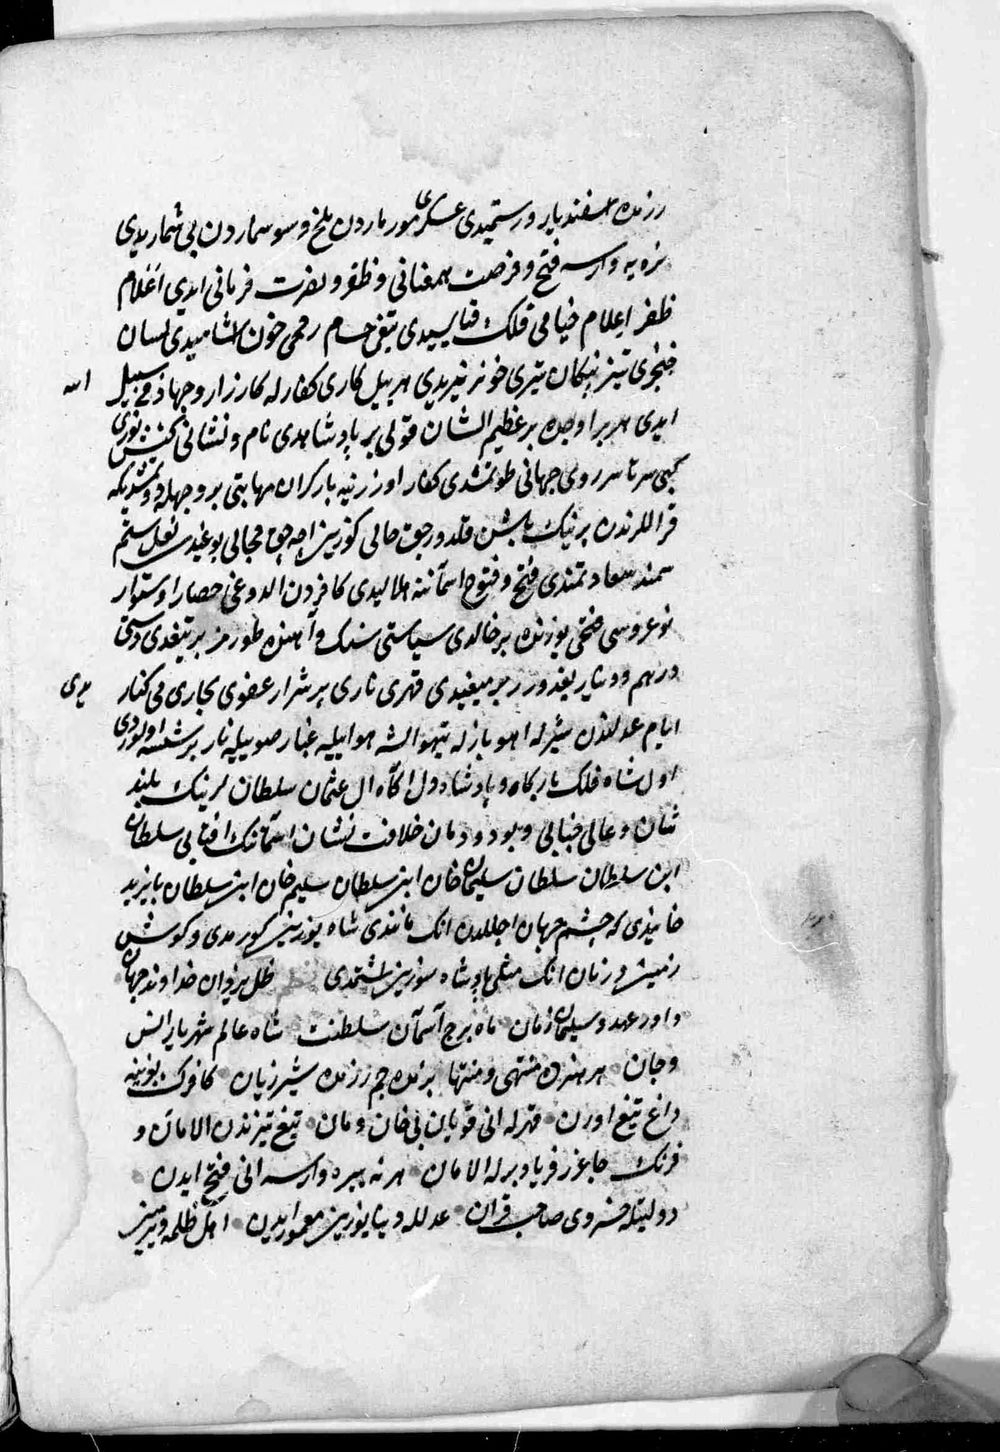 رزمده اسفندیار و رستمیدی عسکری مور ماردن ملخ و سوسماردن بی شماریدی
نره یه وارسه فتح و فرصت همعنانی و ظفر و نصرت فرمانی ایدی اعلام
ظفر اعلام خیامی فلک قبابیسیدی تیغی حسام رمحی خون آشامیدی لسان
خنجری تیز پیکان تیری خونریزیدی هر ییل کاری کفارله کارزار و جهاد فی سبیل الله
ایدی هر بر اوجده بر عظیم الشان قولی بر پادشاهدی نام و نشانی کنش نوری
کبی سر تا سر روی جهانی طوتمشدی کفار اوزرینه بارکران مهابتی بر وجهله دوشمشدیکه
قراللرندن برینک باشن قلدورجق حالی کوزین اچه جق مجالی یوغیدی نعل سم
سمند سعادتمندی فتح و فتوح اسماننه هلالیدی کافردن الدوغی حصار استوار
نو عروسی فتحی یوزنده بر خالدی سیاستی سنک و آهنده طورمز بر تیغدی دستی
درهم و دینار یغدورر بر میغیدی قهری ناری پر شرار عضوی بحاری بی کنار یدی
ایام عدلنده شیرله اهو بازله تیهو اتشله هوا ییله غبار صو ییله نار بر شسته اولوردی
اول شاه فلک بارکاه و پادشاه دل اکاه ال عثمان سلطان لرینک بلند
شان و عالی جنابی و بو دودمان خلافت نشان اسماننک افتابی سلطان
ابن سلطان سلطان سلیمان خان ابن سلطان سلیم خان ابن سلطان بایزید
خانیدی که چشم جهان اجللدن انک مانندی شاه یوزین کورمدی و کوش
زمین و زمان انک مثلی پادشاه سوزین اشتمدی ظل یزدان خداوند جهان
داور عهد و سلیمان زمان ماه برج آسمان سلطنت شاه عالم شهریار انس
و جان هر هنرده منتهی و منتها بزمده جم رزمده شیر ژیان کافرک بوینینه
داغ تیغ اورن قهرله انی قویان بی خان و مان تیغ تیزندن الامان و
فرنک جاغرر فریاد برله الامان هر نه ییره وارسه انی فتح ایدن
دولتیله خسروی صاحب قران عدلله دنیا یوزین معمور ایدن اهل ظلمه ویرمین